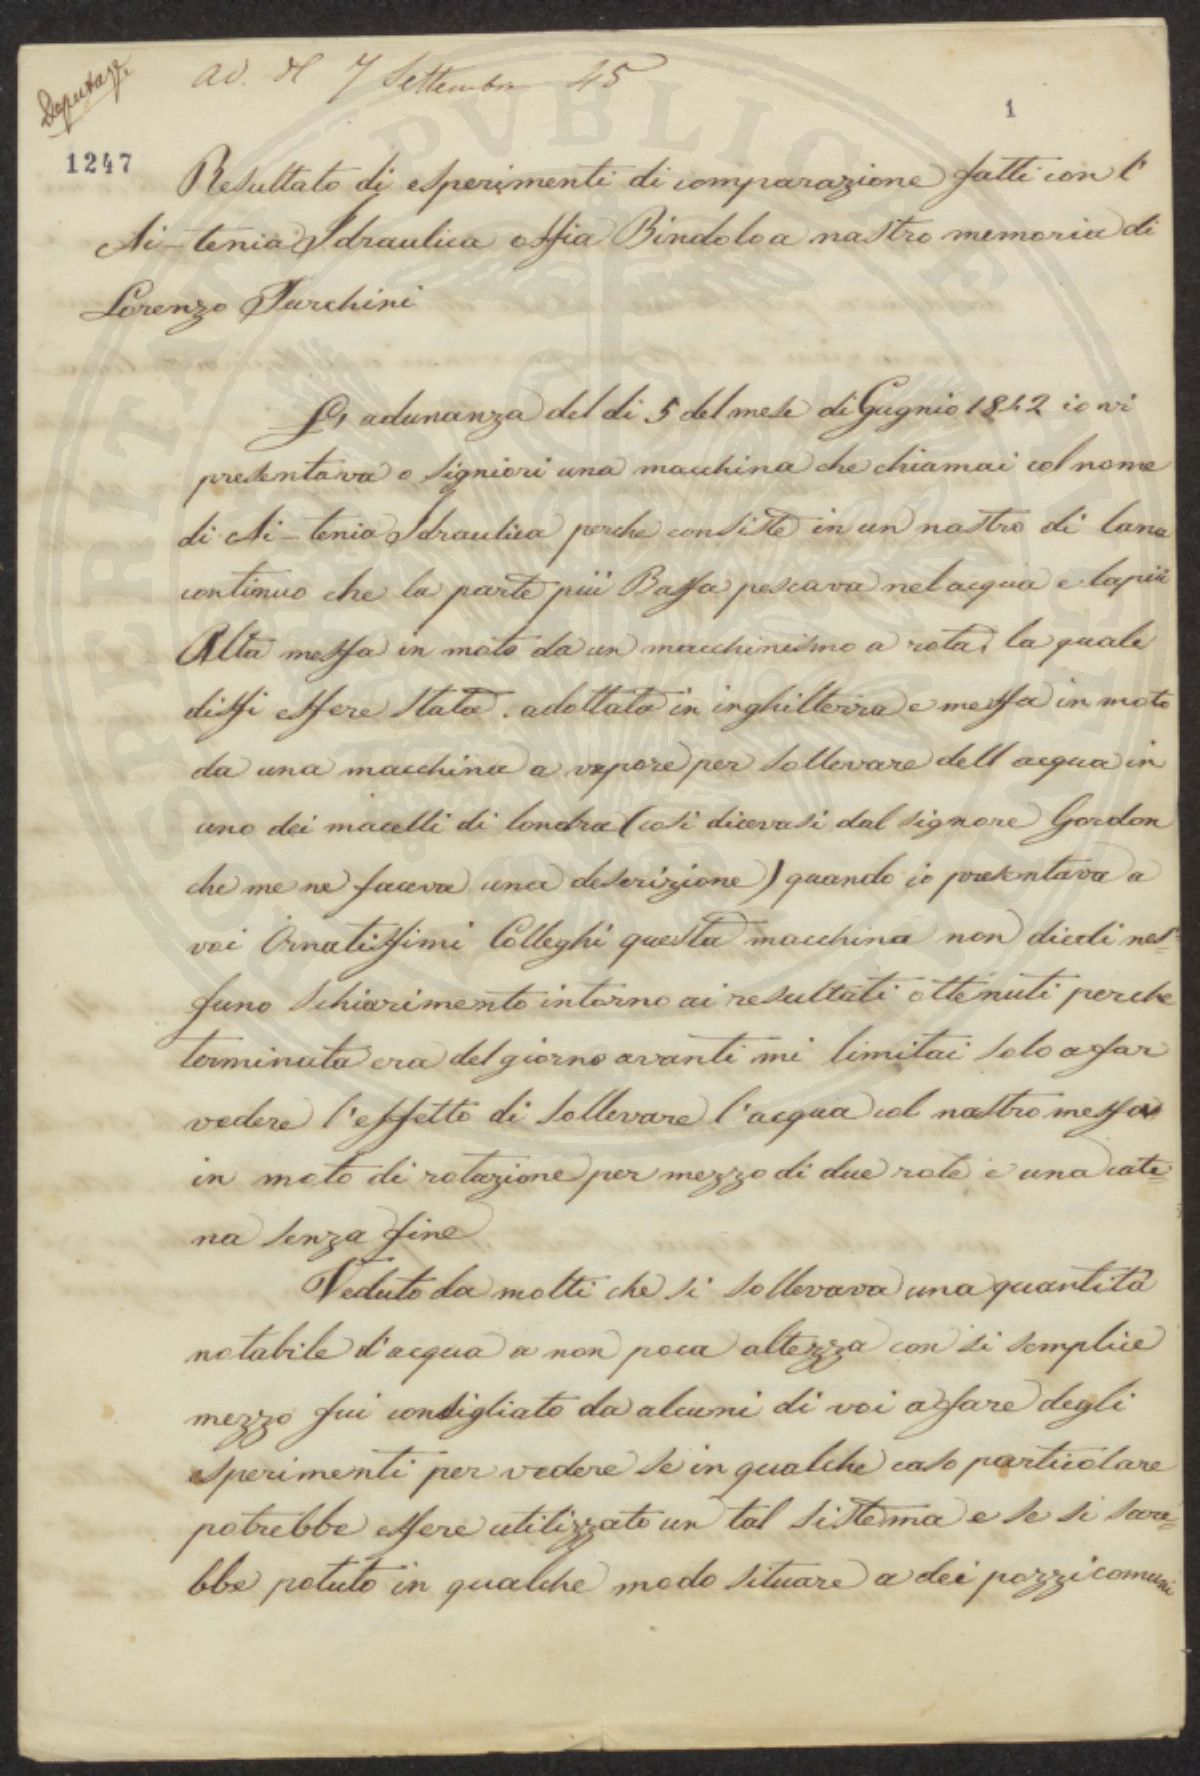 Deputaz.
ad. del 7 Settembre 45
1
1247
Resultato di esperimenti di comparazione fatti con l'
Ai-tenia Idraulica ossia Bindolo a nastro memoria di
Lorenzo Turchini
L, adunanza del di 5 del mese di Gugnio 1842 io vi
presentava o signiori una macchina che chiamai col nome
di Ai-tenia Idraulica perche consiste in un nastro di lana
continuo che la parte più Bassa pescava nel acqua e la più
Alta messa in moto da un macchinismo a rota, la quale
dissi essere stata adottata in inghilterra e messa in moto
da una macchina a vapore per sollevare dell acqua in
uno dei macelli di londra (cosi dicevasi dal signore Gordon
che me ne faceva una descrizione) quando io presentava a
voi Ornatissimi Colleghi questa macchina non diedi nes=
suno schiarimento intorno ai resultati ottenuti perche
terminata era del giorno avanti mi limitai solo a far
vedere l'effetto di sollevare l'acqua col nastro messo
in moto di rotazione per mezzo di due rote e una cate=
na senza fine
Veduto da molti che si sollevava una quantità
notabile d'acqua a non poca altezza con si semplice
mezzo fui consigliato da alcuni di voi a fare degli
esperimenti per vedere se in qualche caso particolare
potrebbe essere utilizzato un tal sistema e se si sare=
bbe potuto in qualche modo situare a dei pozzi comuni
PUBLICAE PROSPERITATI